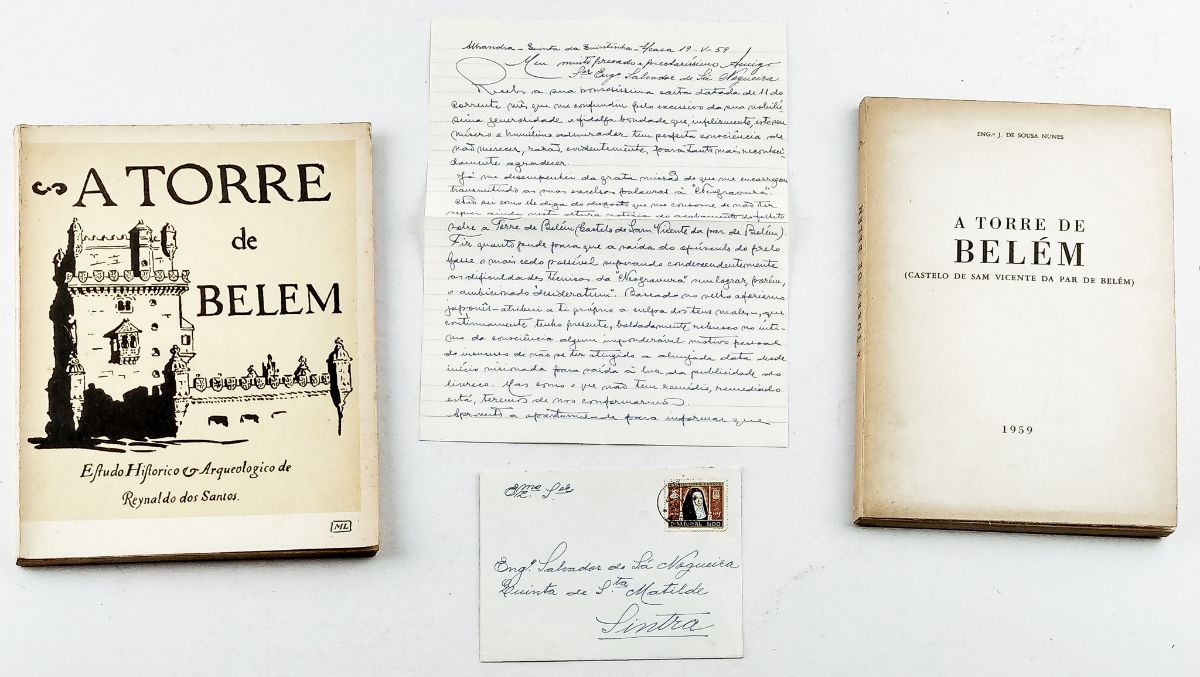 A TORRE
de
BELEM
Estudo Historico & Arqueologico de
Reynaldo dos Santos.
ML
Alhandra – Quinta da Quintinha – Acasa 19-V-59
Meu muito prezado e prestantíssimo Amigo
Snr Engº Salvador de Sá Nogueira
Recebi a sua honrosíssima carta datada de 11 do
corrente mês que me confundiu pelo excessivo da sua nobilís-
sima generosidade e fidalga bondade que, infelizmente, este seu
mísero e humílimo admirador tem perfeita consciência de
não merecer, razão, evidentemente, para tanto mais reconheci-
damente agradecer.
Já me desempenhei da grata missão de que me encarregou
transmitindo as suas excelsas palavras à "Neogravura".
Não sei como lhe diga do desgosto que me consome de não ter
ainda nesta altura notícia do acabamento do folheto
sobre a Torre de Belém (Castelo de Sam Vicente da par de Belém).
Fiz quanto pude para que a saída do opúsculo do prelo
fosse o mais cedo possível superando condescendentemente
as dificuldades técnicas da "Neogravura" sem lograr, porém,
o ambicionado "desideratum". Baseado no velho aforismo
japonês – atribui a ti próprio a culpa dos teus males –, que
continuamente tenho presente, baldadamente rebusco no ínti-
mo da consciência algum imponderável motivo pessoal
do insucesso de não se ter atingido a almejada data desde
início visionada para saída à luz da publicidade do
livreco. Mas como o que não tem remédio, remediado
está, teremos de nos conformarmos.
Aproveito a oportunidade para informar que
Exmo Snr
PORTUGAL 1$00
Engº Salvador de Sá Nogueira
Quinta de Sta Matilde
Sintra
ENG.º J. DE SOUSA NUNES
A TORRE DE
BELÉM
(CASTELO DE SAM VICENTE DA PAR DE BELÉM)
1959